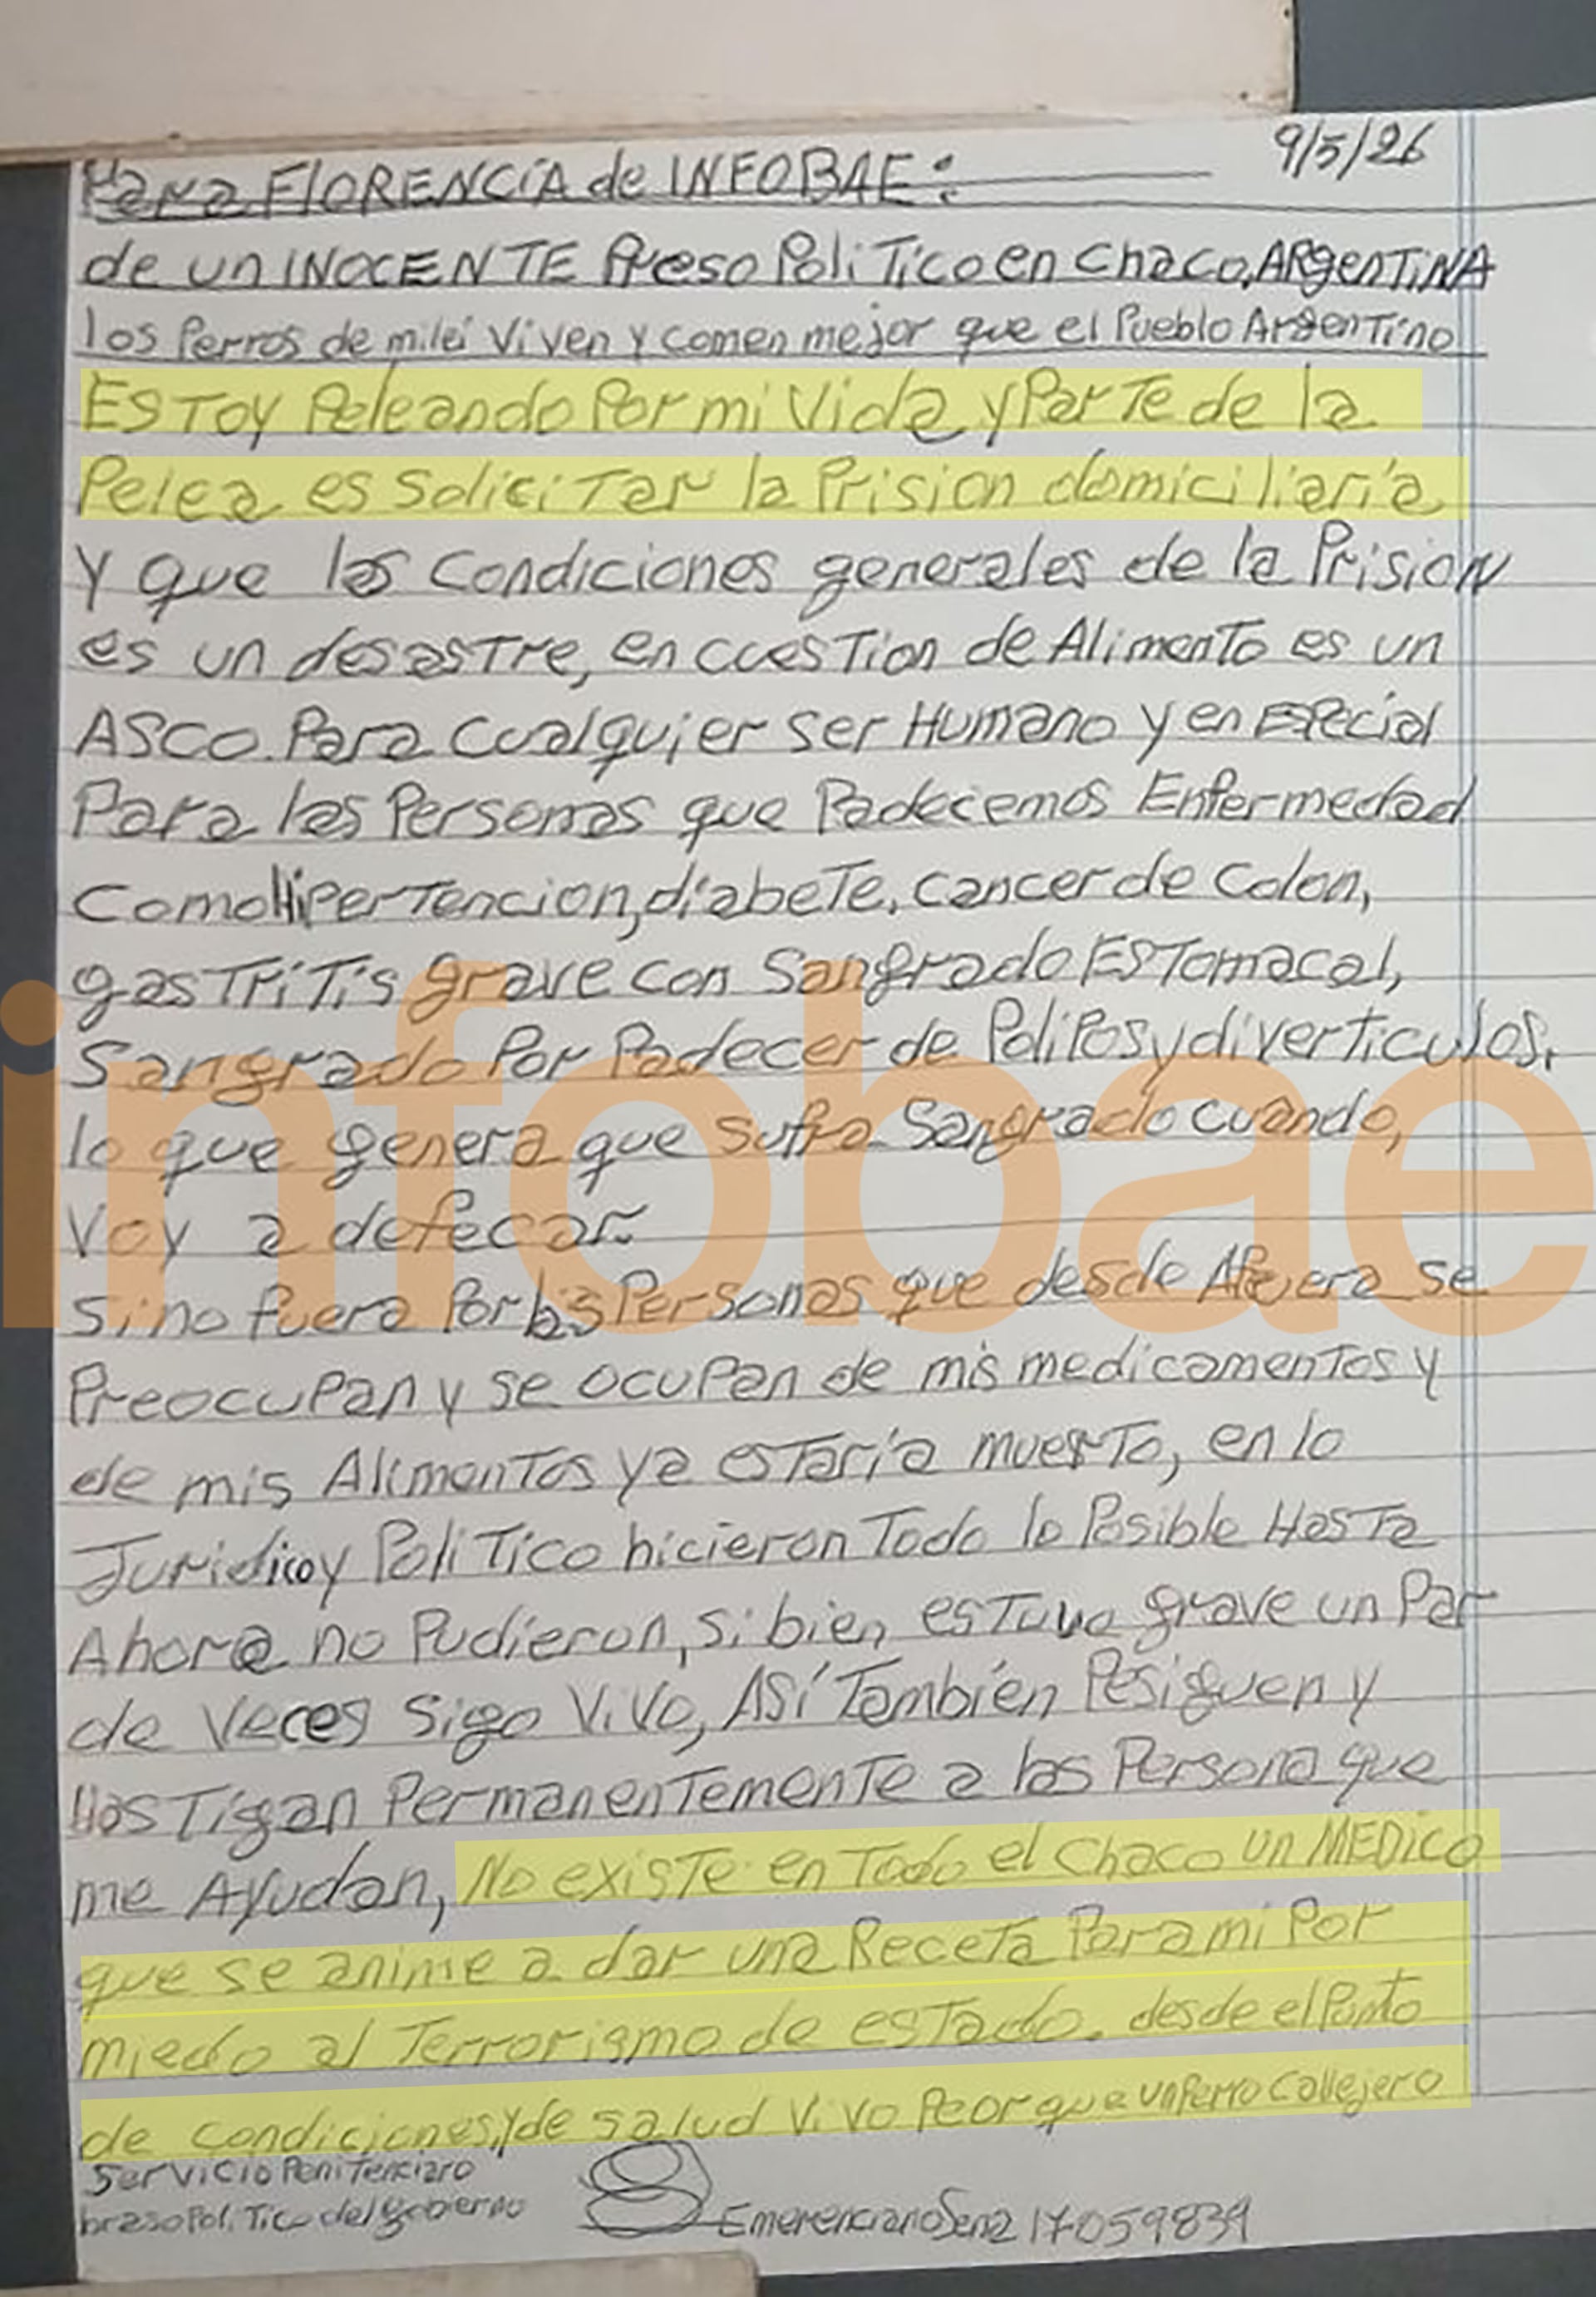 9/5/26
Para FlORENCIA de INFOBAE:
de un INOCENTE Preso PoliTico en Chaco, ARgenTiNA
los Perros de milei Viven y comen mejor que el Pueblo ArgenTino
EsToy Peleando Por mi Vida y ParTe de la
Pelea es SoliciTar la Prision domiciliaria
Y que las Condiciones generales de la Prision
es un desasTre, en cuesTion de Alimento es un
ASCO. Para Cualquier ser Humano y en Especial
Para las Personas que Padecemos Enfermedad
Como HiperTencion, diabeTe, Cancer de Colon,
gasTriTis grave con Sangrado ESTomacal,
Sangrado Por Padecer de Polipos y diverticulos,
lo que genera que sufra Sangrado Cuando,
Voy a defecar.
Si no fuera Por las Personas que desde Afuera se
Preocupan y se ocupan de mis medicamenTos y
de mis AlimenTos ya esTaria muerTo, en lo
Juridico y PoliTico hicieron Todo lo Posible HasTa
Ahora no Pudieron, si bien esTuve grave un Par
de Veces Sigo Vivo, ASí También Pesiguen y
HosTigan PermanenTemenTe a las Persona que
me Ayudan, No exisTe en Todo el Chaco un MEDICO
que se anime a dar una ReceTa Para mi Por
miedo al Terrorismo de esTado. desde el Punto
de condiciones y de salud Vivo Peor que un Perro Callejero
Servicio PeniTenciaro
braso PoliTico del gobierno
Emerenciano Sena 17059839
infobae